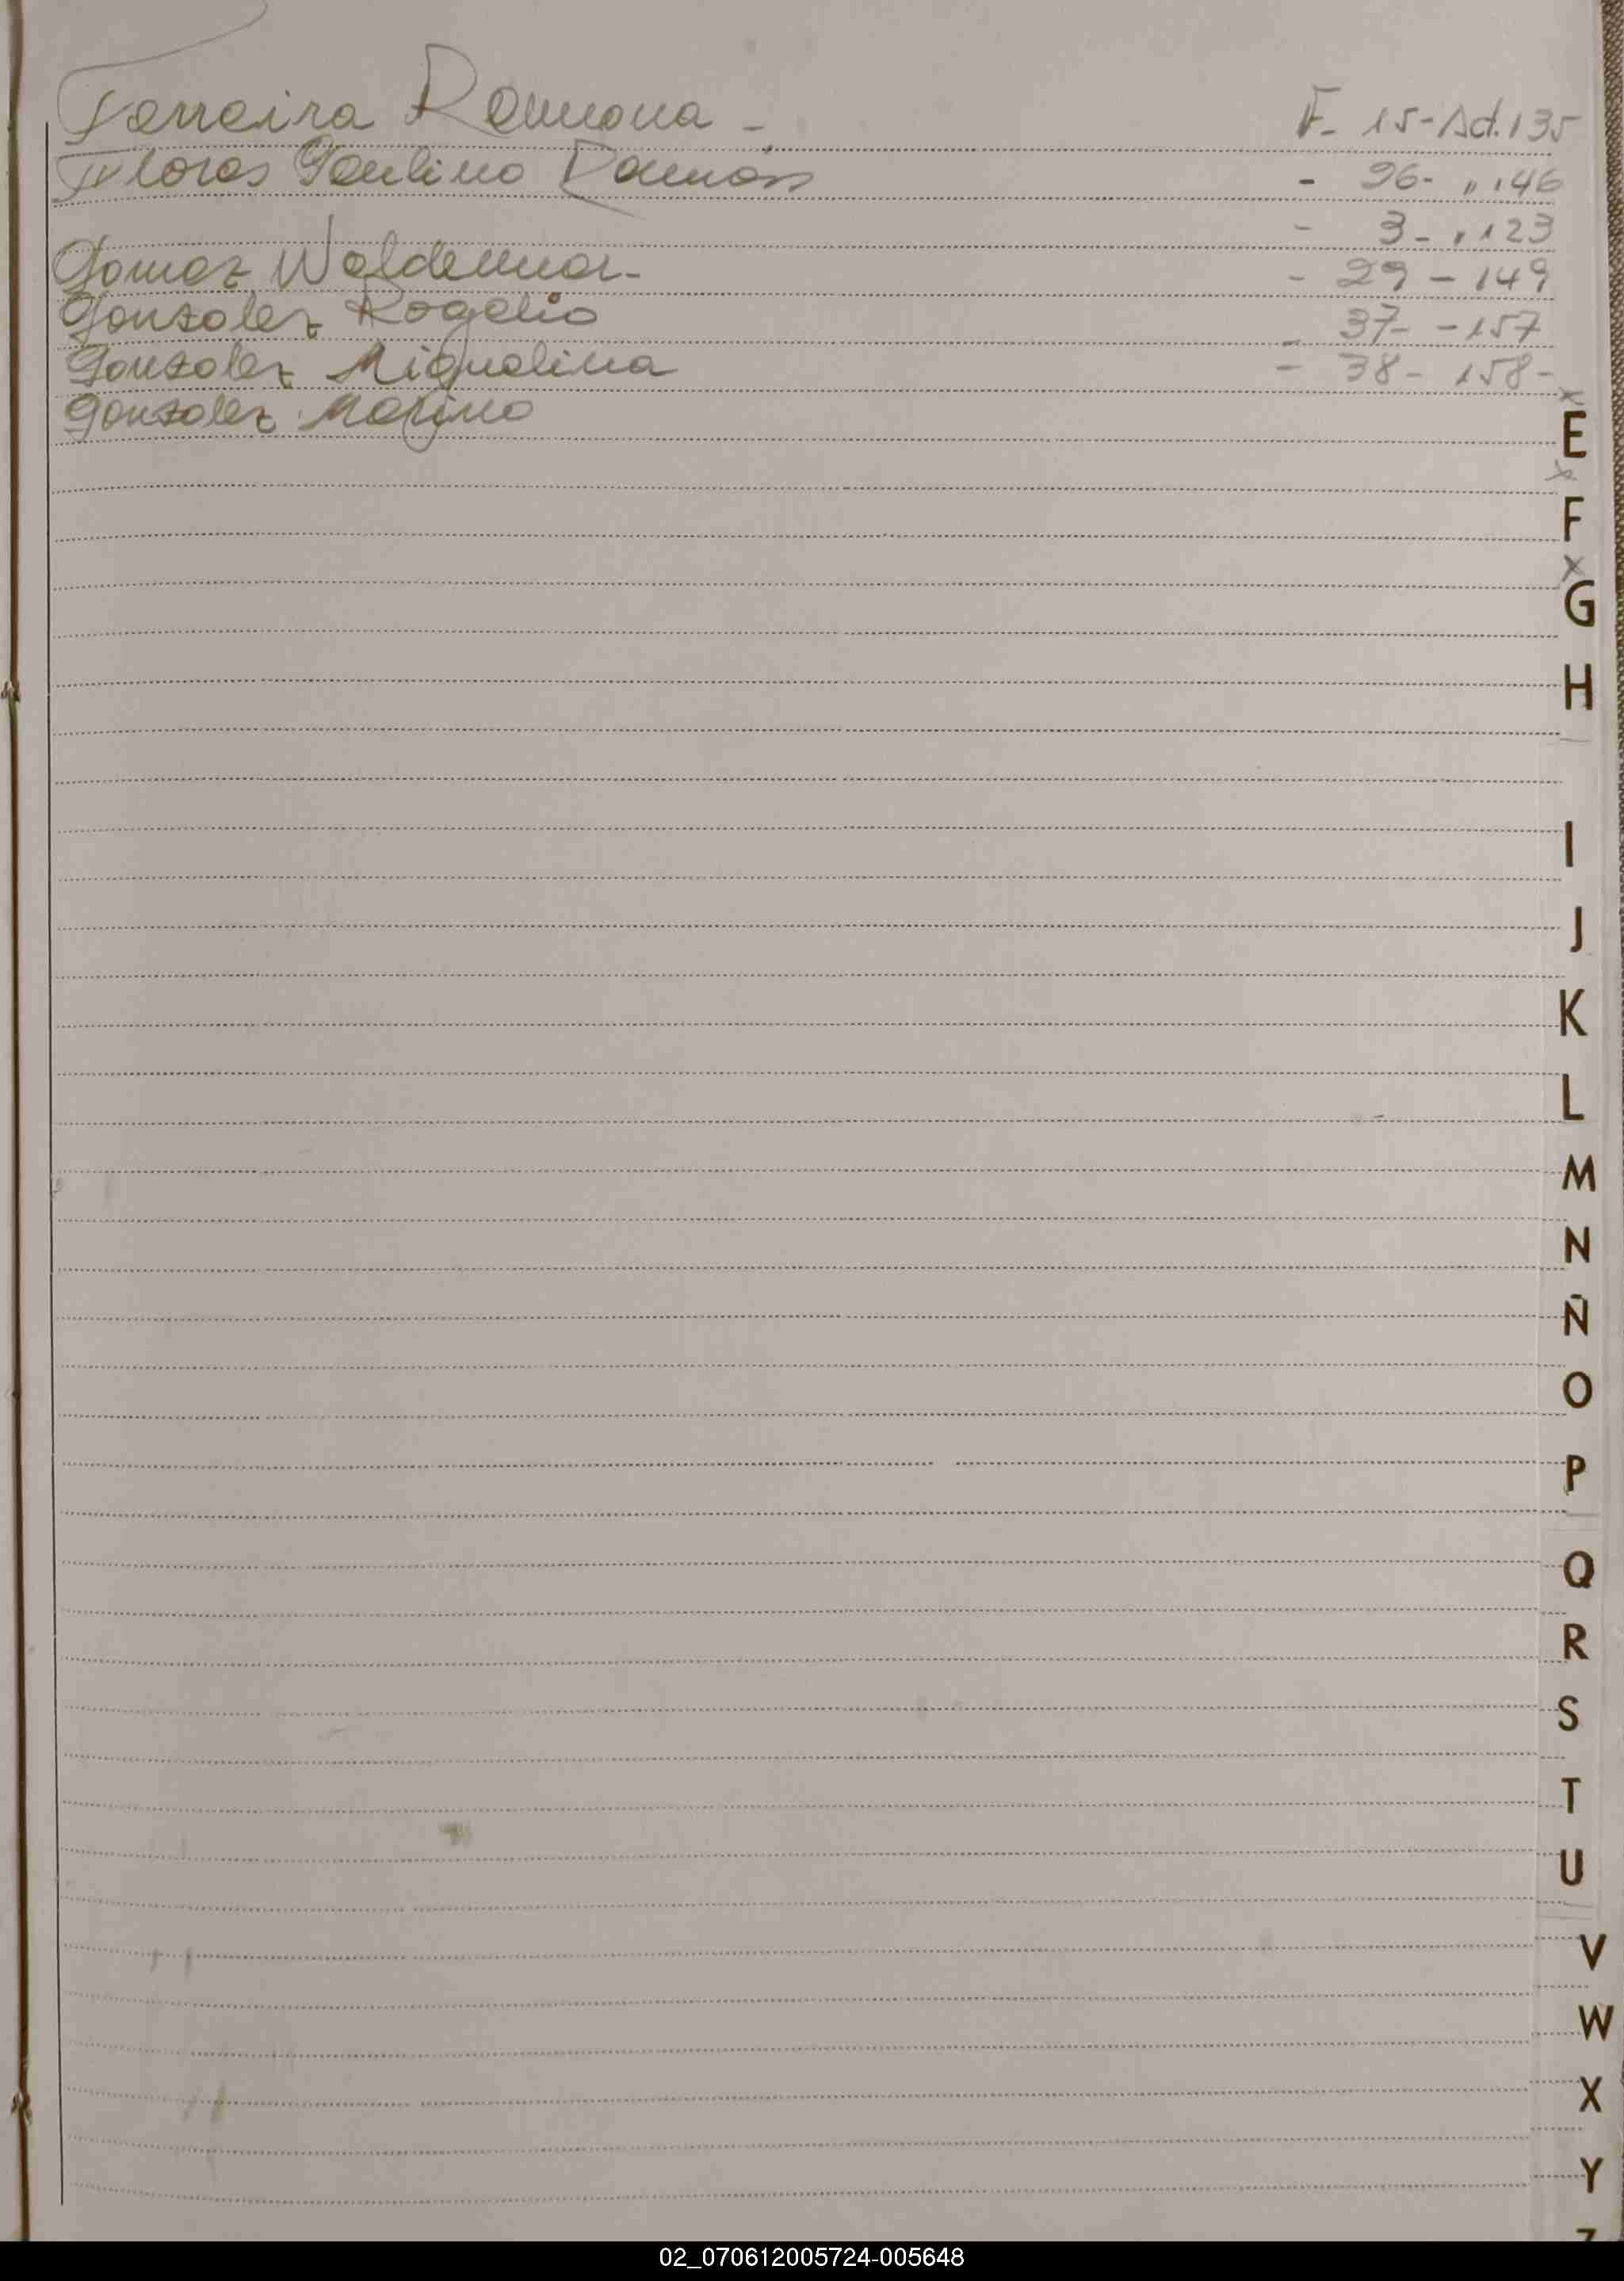 Ferreira Ramona - F. 15- Act. 135
Flores Paulino Ramón - 26- " 146
- 3- " 123
Gomez Waldemar - - 29 - 149
Gonzalez Rogelio - 37- - 157
Gonzalez Miguelina - 38- 158-
Gonzalez Marino
x
E
x
F
x
G
H
I
J
K
L
M
N
Ñ
O
P
Q
R
S
T
U
V
W
X
Y
Z
02_070612005724-005648